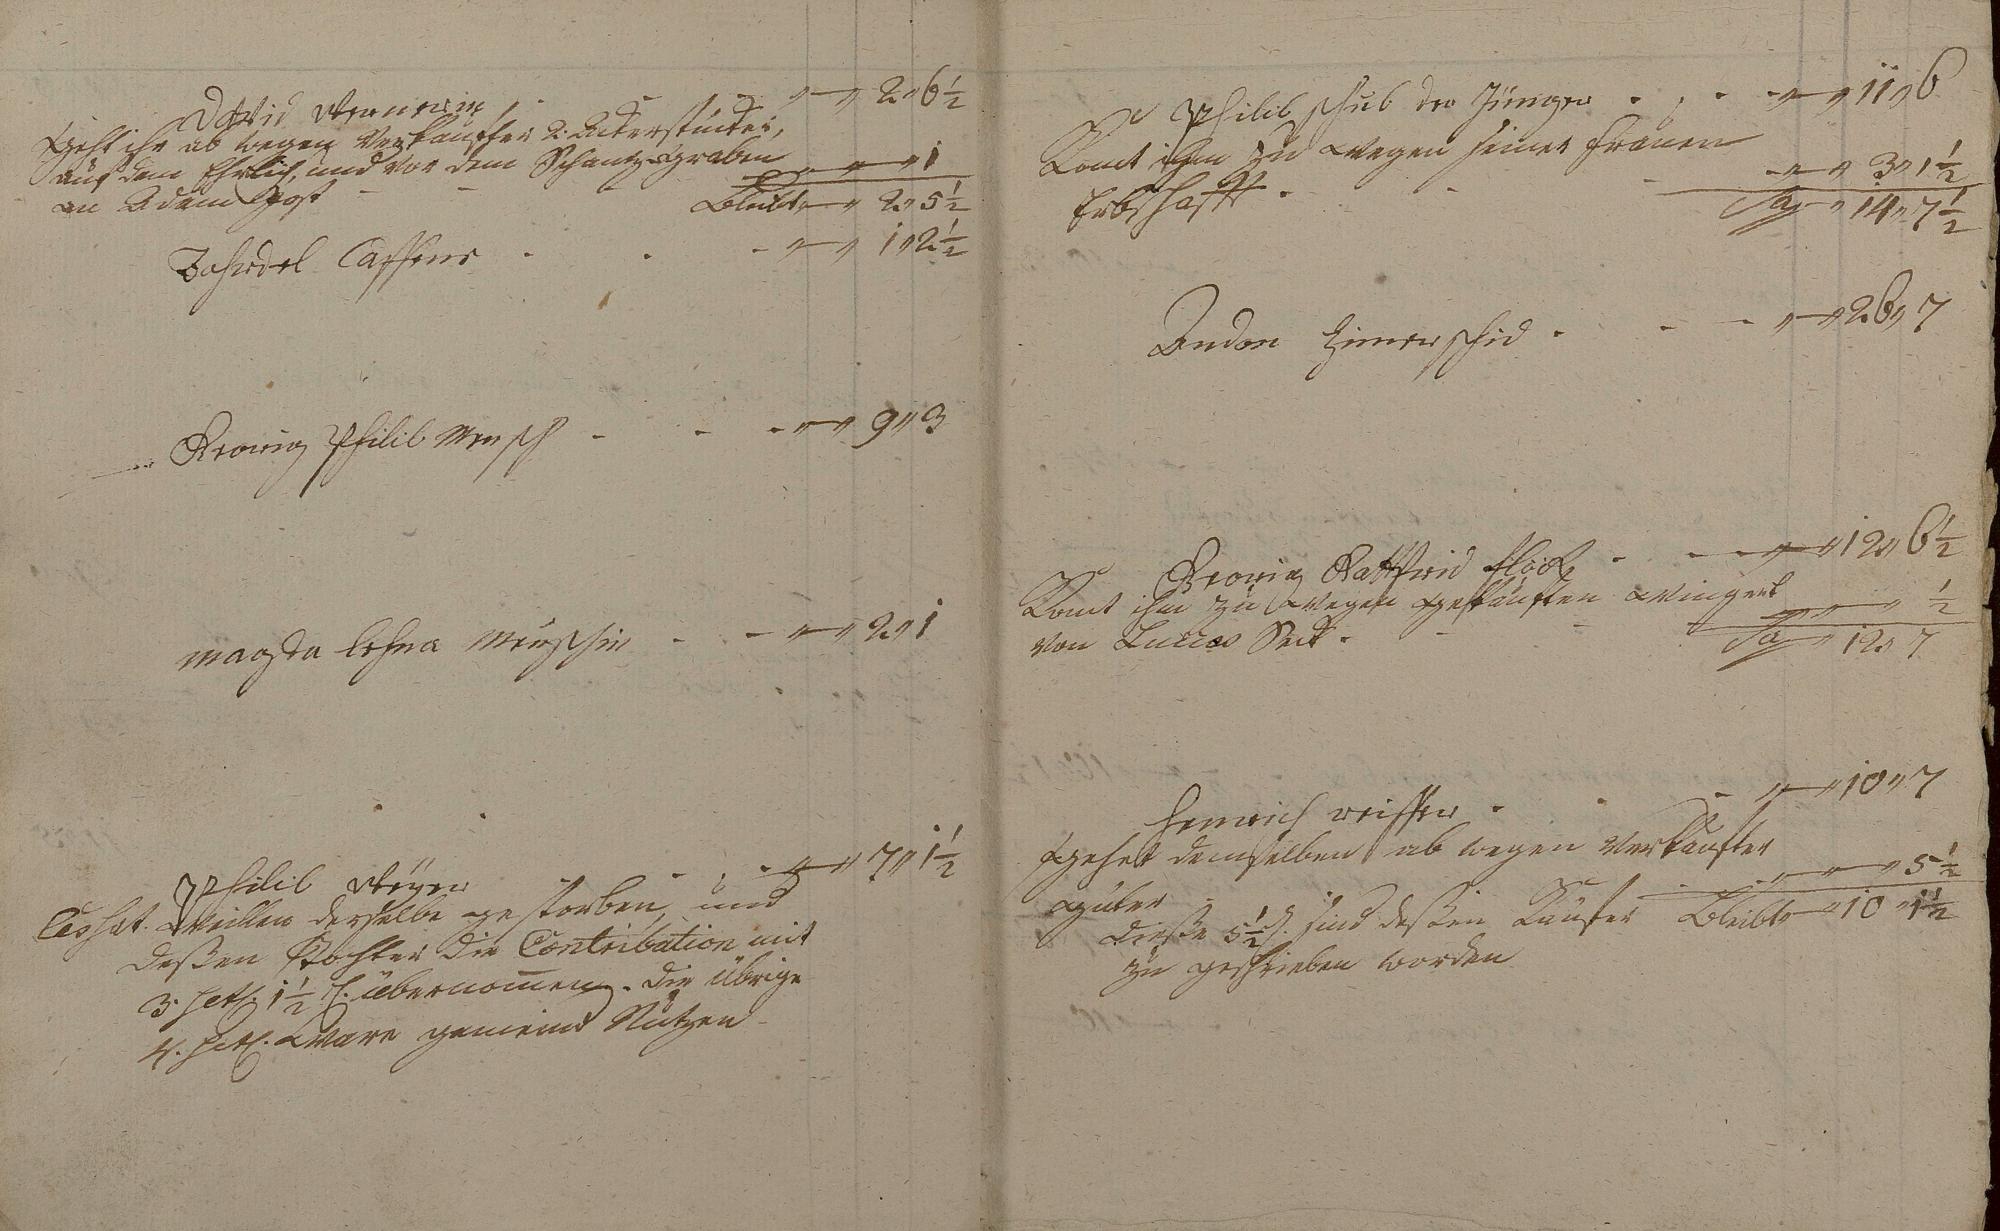 David Wernerin - - - " — " 2 " 6 1/2
Geht ihr ab wegen Verkauffter 2. Ackerstücker,
auf dem Ehrlich, und vor dem Schantz graben " — " — " 1
an Adam Post - - - Bleibt — " 2 " 5 1/2
Cassens - - - " — " 1 " 2 1/2
Georig Philib Mensch - - - " — " 9 " 3
Magda lehna Menschin - - " — " 2 " 1
Philib Weyer - - - " — " 7 " 1 1/2
Cessat. Weillen derselbe gestorben, und
deßen Tochter die Contribution mit
3. 1 1/2 übernom̄en. die übrige
4. Ware gemeine Nutzen
Philib Schub der Jünger - - - " — " 11 " 6
Komt ihm zu wegen seiner Frauen
Erbschafft - - - " — " 3 " 1 1/2
Sa — " 14 " 7 1/2
Andon Zimerschid - - - " — " 26 " 7
Georig Gattfrid Flöck - - - " — " 12 " 6 1/2
Komt ihm zu Wegen gekäuften Wingert
von Luccas Seck - - - " — " — " 1/2
Sa — " 12 " 7
Henrich reiffen - - - " — " 10 " 7
Gehet demselben ab wegen Verkaufter
güter - - - " — " — " 5 1/2
dieße 5 1/2 ß. sind deßen Käufer Bleibt — " 10 " 1 1/2
zu geschrieben worden